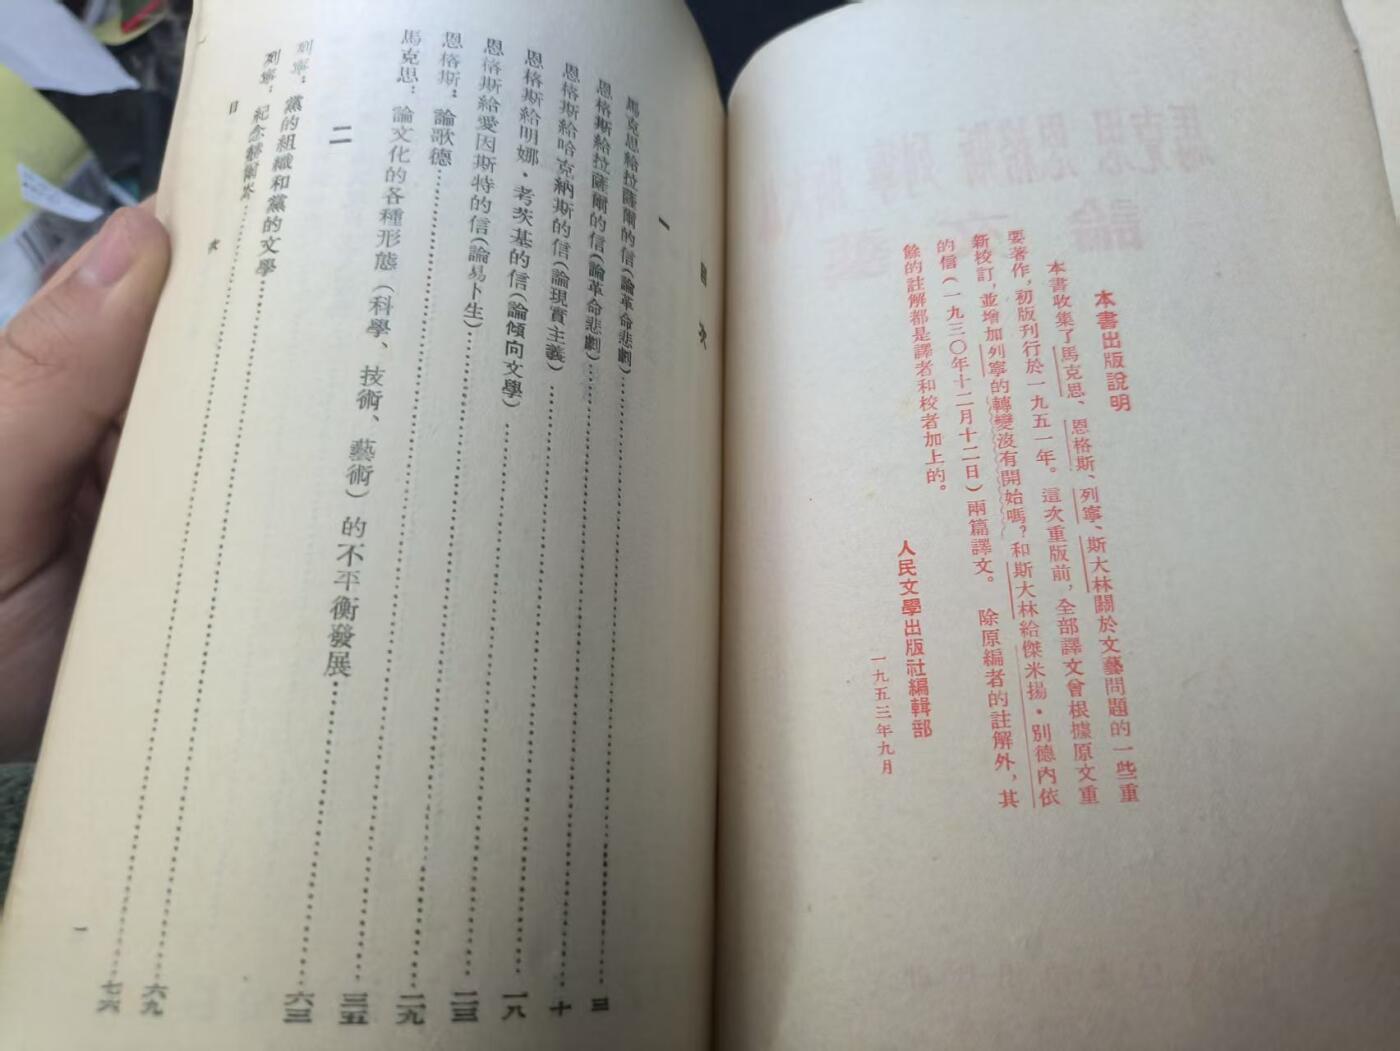 本書出版說明
本書收集了馬克思、恩格斯、列寧、斯大林關於文藝問題的一些重
要著作，初版刊行於一九五一年。這次重版前，全部譯文曾根據原文重
新校訂，並增加列寧的轉變沒有開始嗎？和斯大林給傑米揚·別德內依
的信（一九三〇年十二月十二日）兩篇譯文。除原編者的註解外，其
餘的註解都是譯者和校者加上的。
人民文學出版社編輯部
一九五三年九月
目次
一
馬克思給拉薩爾的信（論革命悲劇）……三
恩格斯給拉薩爾的信（論革命悲劇）……十
恩格斯給哈克納斯的信（論現實主義）……一八
恩格斯給明娜·考茨基的信（論傾向文學）……二三
恩格斯給愛因斯特的信（論易卜生）……二九
恩格斯：論歌德……三五
馬克思：論文化的各種形態（科學、技術、藝術）的不平衡發展……六三
二
列寧：黨的組織和黨的文學……六九
列寧：紀念赫爾岑……七六
目次
一